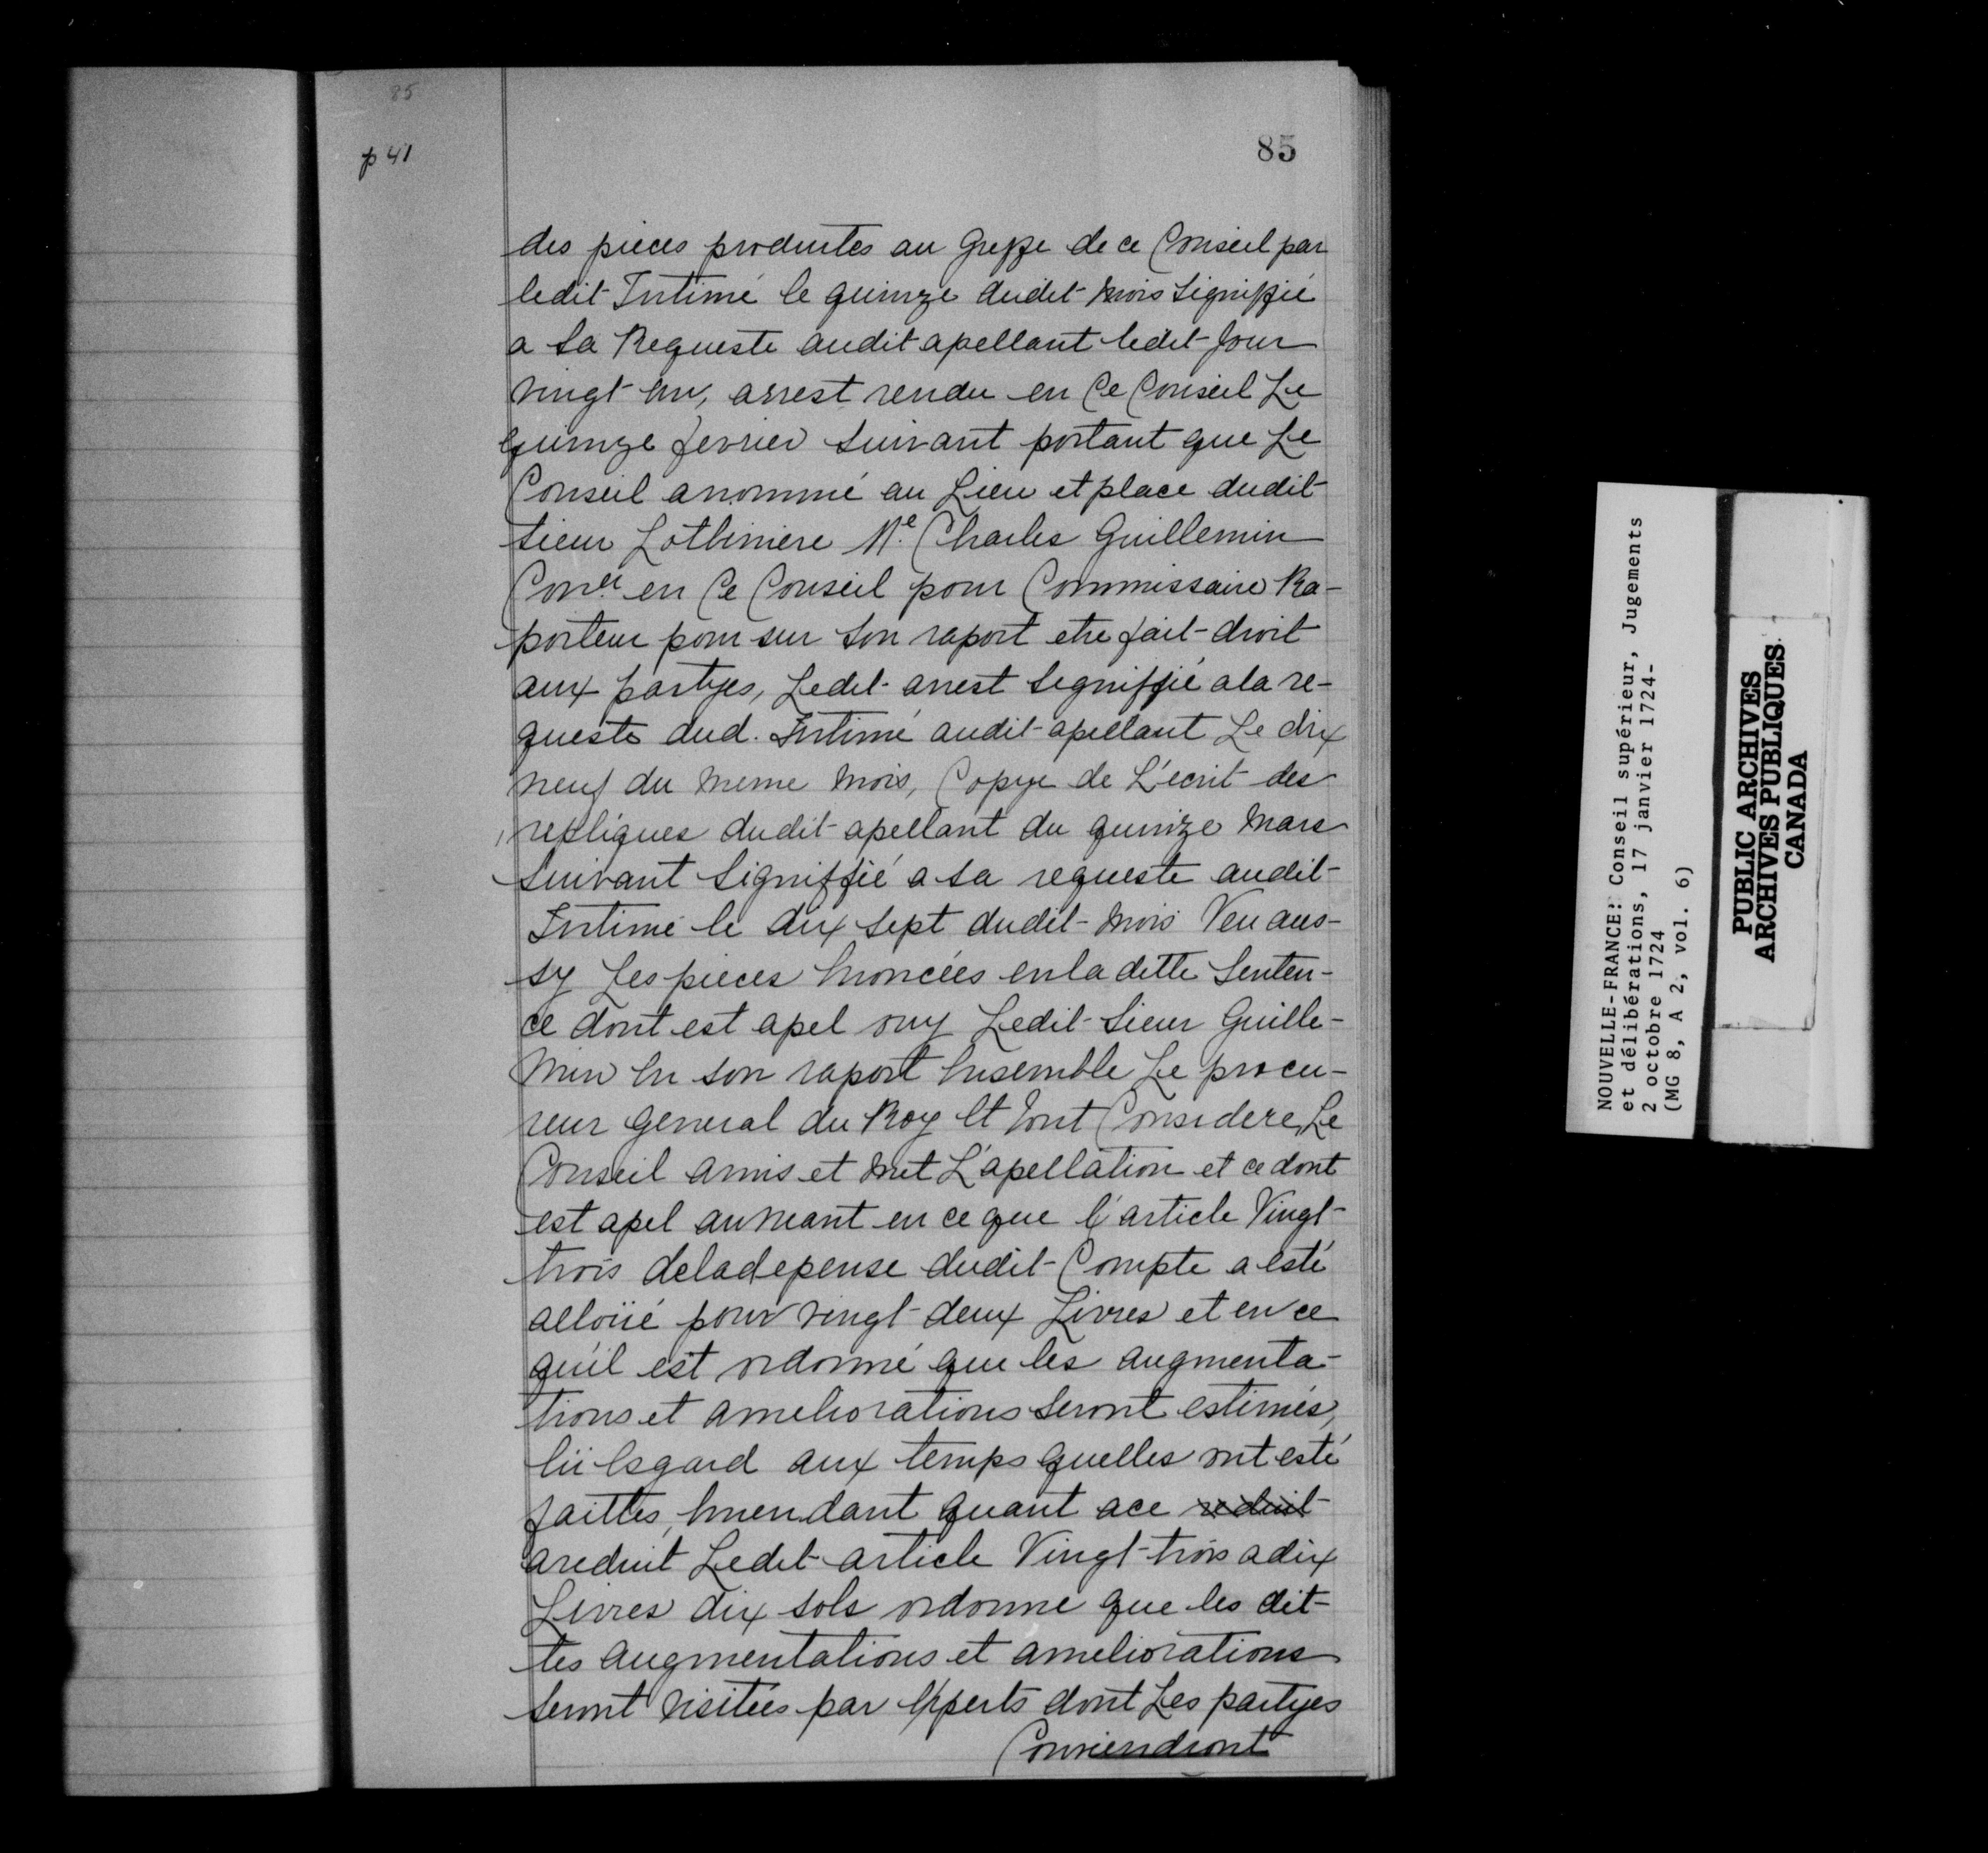 85
p 41
85
des pieces produites au Greffe de ce Conseil par
ledit Intimé le quinze dudit mois Signiffié
a Sa Requeste audit apellant ledit Jour
vingt un, arrest rendu en Ce Conseil Le
quinze fevrier Suivant portant que Le
Conseil anommé au Lieu et place dudit
Sieur Lotbiniere Me. Charles Guillemin
Coner. en Ce Conseil pour Commissaire Ra-
porteur pour sur Son raport etre fait droit
aux partyes, Ledit arrest Signiffié ala re-
queste dud. Intimé audit apellant Le dix
neuf du meme mois, Copye de L'ecrit des
repliques dudit apellant du quinze Mars
Suivant Signiffié a Sa requeste audit
Intimé le dix Sept dudit mois Veu aus-
sy Les pieces Enoncées enladitte Senten-
ce dont est apel ouy Ledit Sieur Guille-
min En Son raport Ensemble Le procu-
reur General du Roy Et tout Consideré Le
Conseil amis et met L'apellation et ce dont
est apel auneant en ce que l'article Vingt
trois deladepense dudit Compte a esté
alloüé pour vingt deux Livres et en ce
quil est ordonné que les augmenta-
tions et ameliorations Seront estimés,
Eü Esgard aux temps quelles ont esté
faittes, Emendant quant ace reduit
areduit Ledit article Vingt trois adix
Livres dix Sols ordonne que les dit-
tes augmentations et ameliorations
Seront visitées par Experts dont Les partyes
Conviendront
NOUVELLE-FRANCE: Conseil supérieur, Jugements
et délibérations, 17 janvier 1724-
2 octobre 1724
(MG 8, A 2, vol. 6)
PUBLIC ARCHIVES
ARCHIVES PUBLIQUES
CANADA